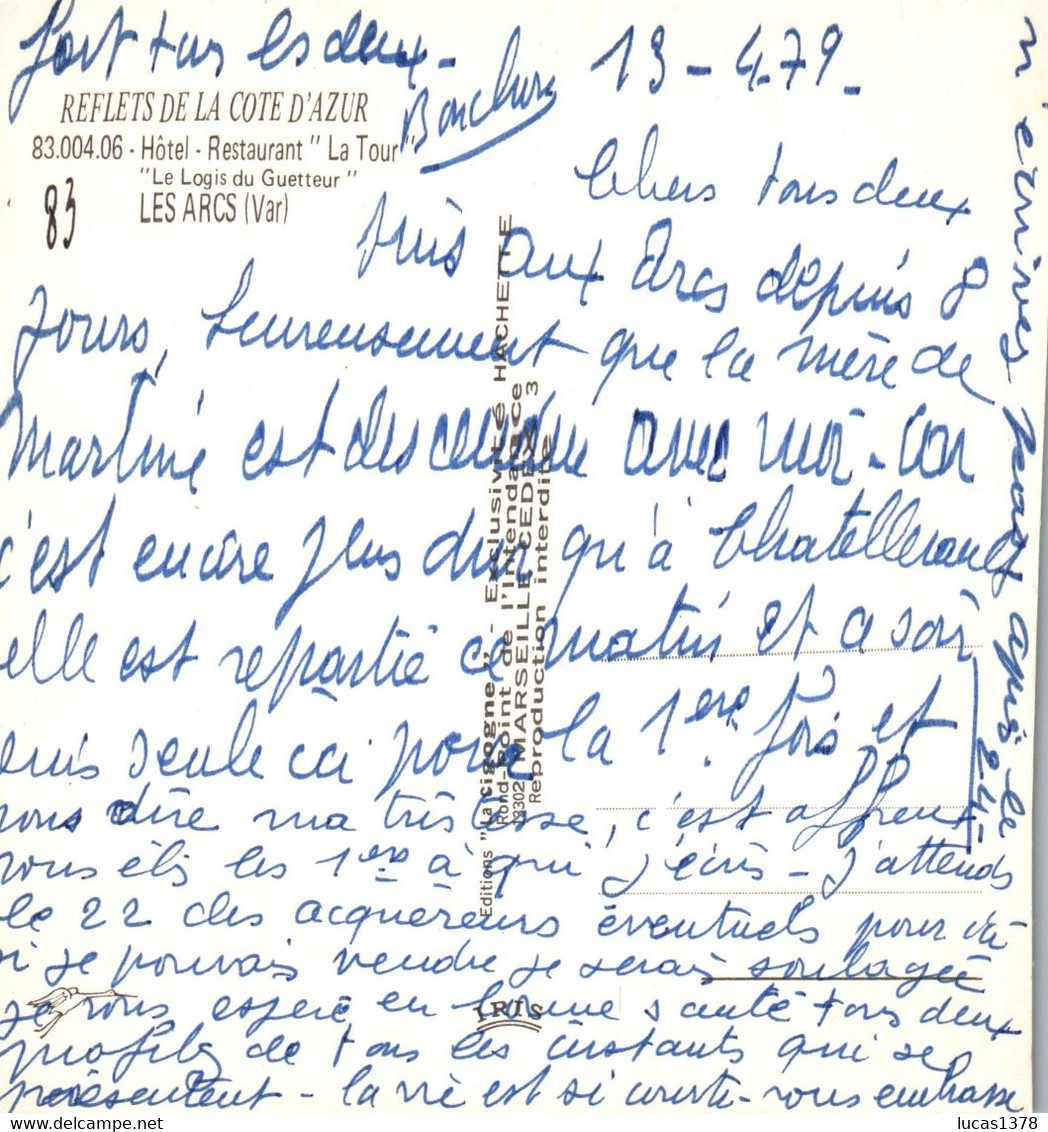 fort tous les deux -
13 - 4.79 -
REFLETS DE LA COTE D'AZUR
83.004.06 - Hôtel - Restaurant " La Tour "
"Le Logis du Guetteur "
LES ARCS (Var)
83
Chers tous deux
suis aux Arcs depuis 8
jours, heureusement que la mère de
Martine est descendue avec moi - car
c'est encore plus dur qu'à Chatellerault
elle est repartie ce matin et ce soir
suis seule ici pour la 1ère fois et
vous dire ma tristesse, c'est affreux
vous êtes les 1ers à qui j'écris - J'attends
le 22 des acquéreurs éventuels pour ici
si je pouvais vendre je serais soulagée
je vous espère en bonne santé tous deux
profitez de tous les instants qui se
présentent - la vie est si courte - vous embrasse
n'écrivez pas après le
24 -
Editions " La cigogne " - Exclusivité HACHETTE
Rond-Point de l'Intendance
13302 MARSEILLE CEDEX 3
Reproduction interdite
IRIS
lucas1378